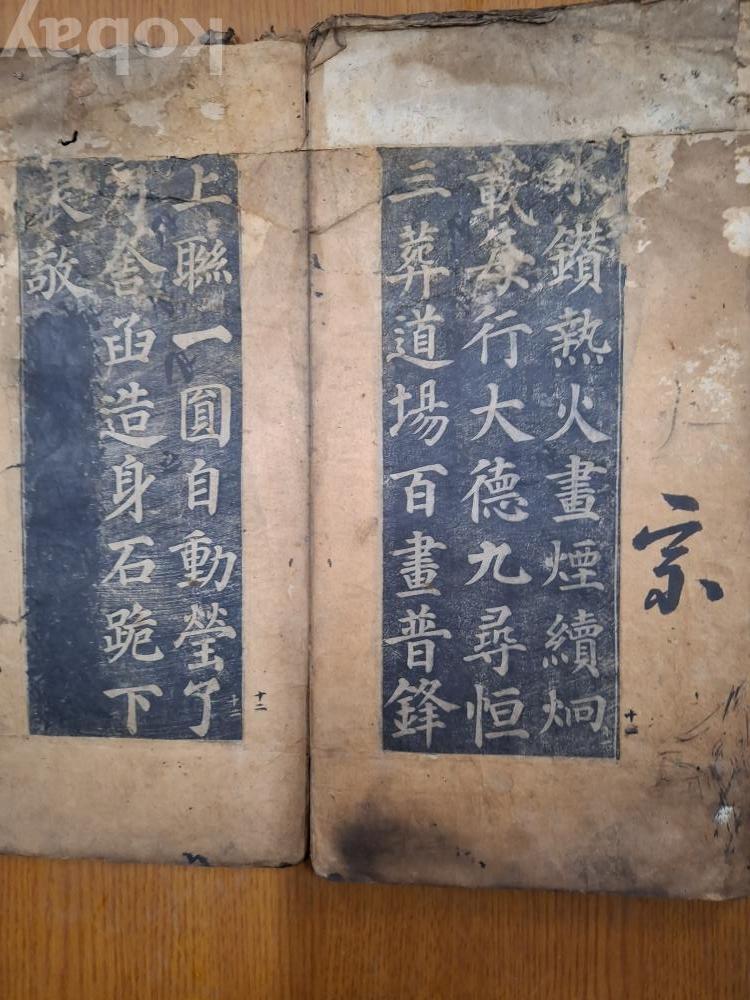 水鑚熱火畫煙續炯
載每行大德九尋恒
三葬道場百畫普鋒
十一
宗
上聯一圓自動瑩了
舍函造身石跪下
敬
十二
kobay